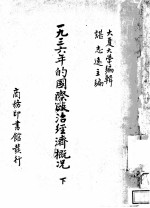 大夏大學編輯
諶志遠主編
一九三六年的國際政治經濟概況
下
商務印書館發行